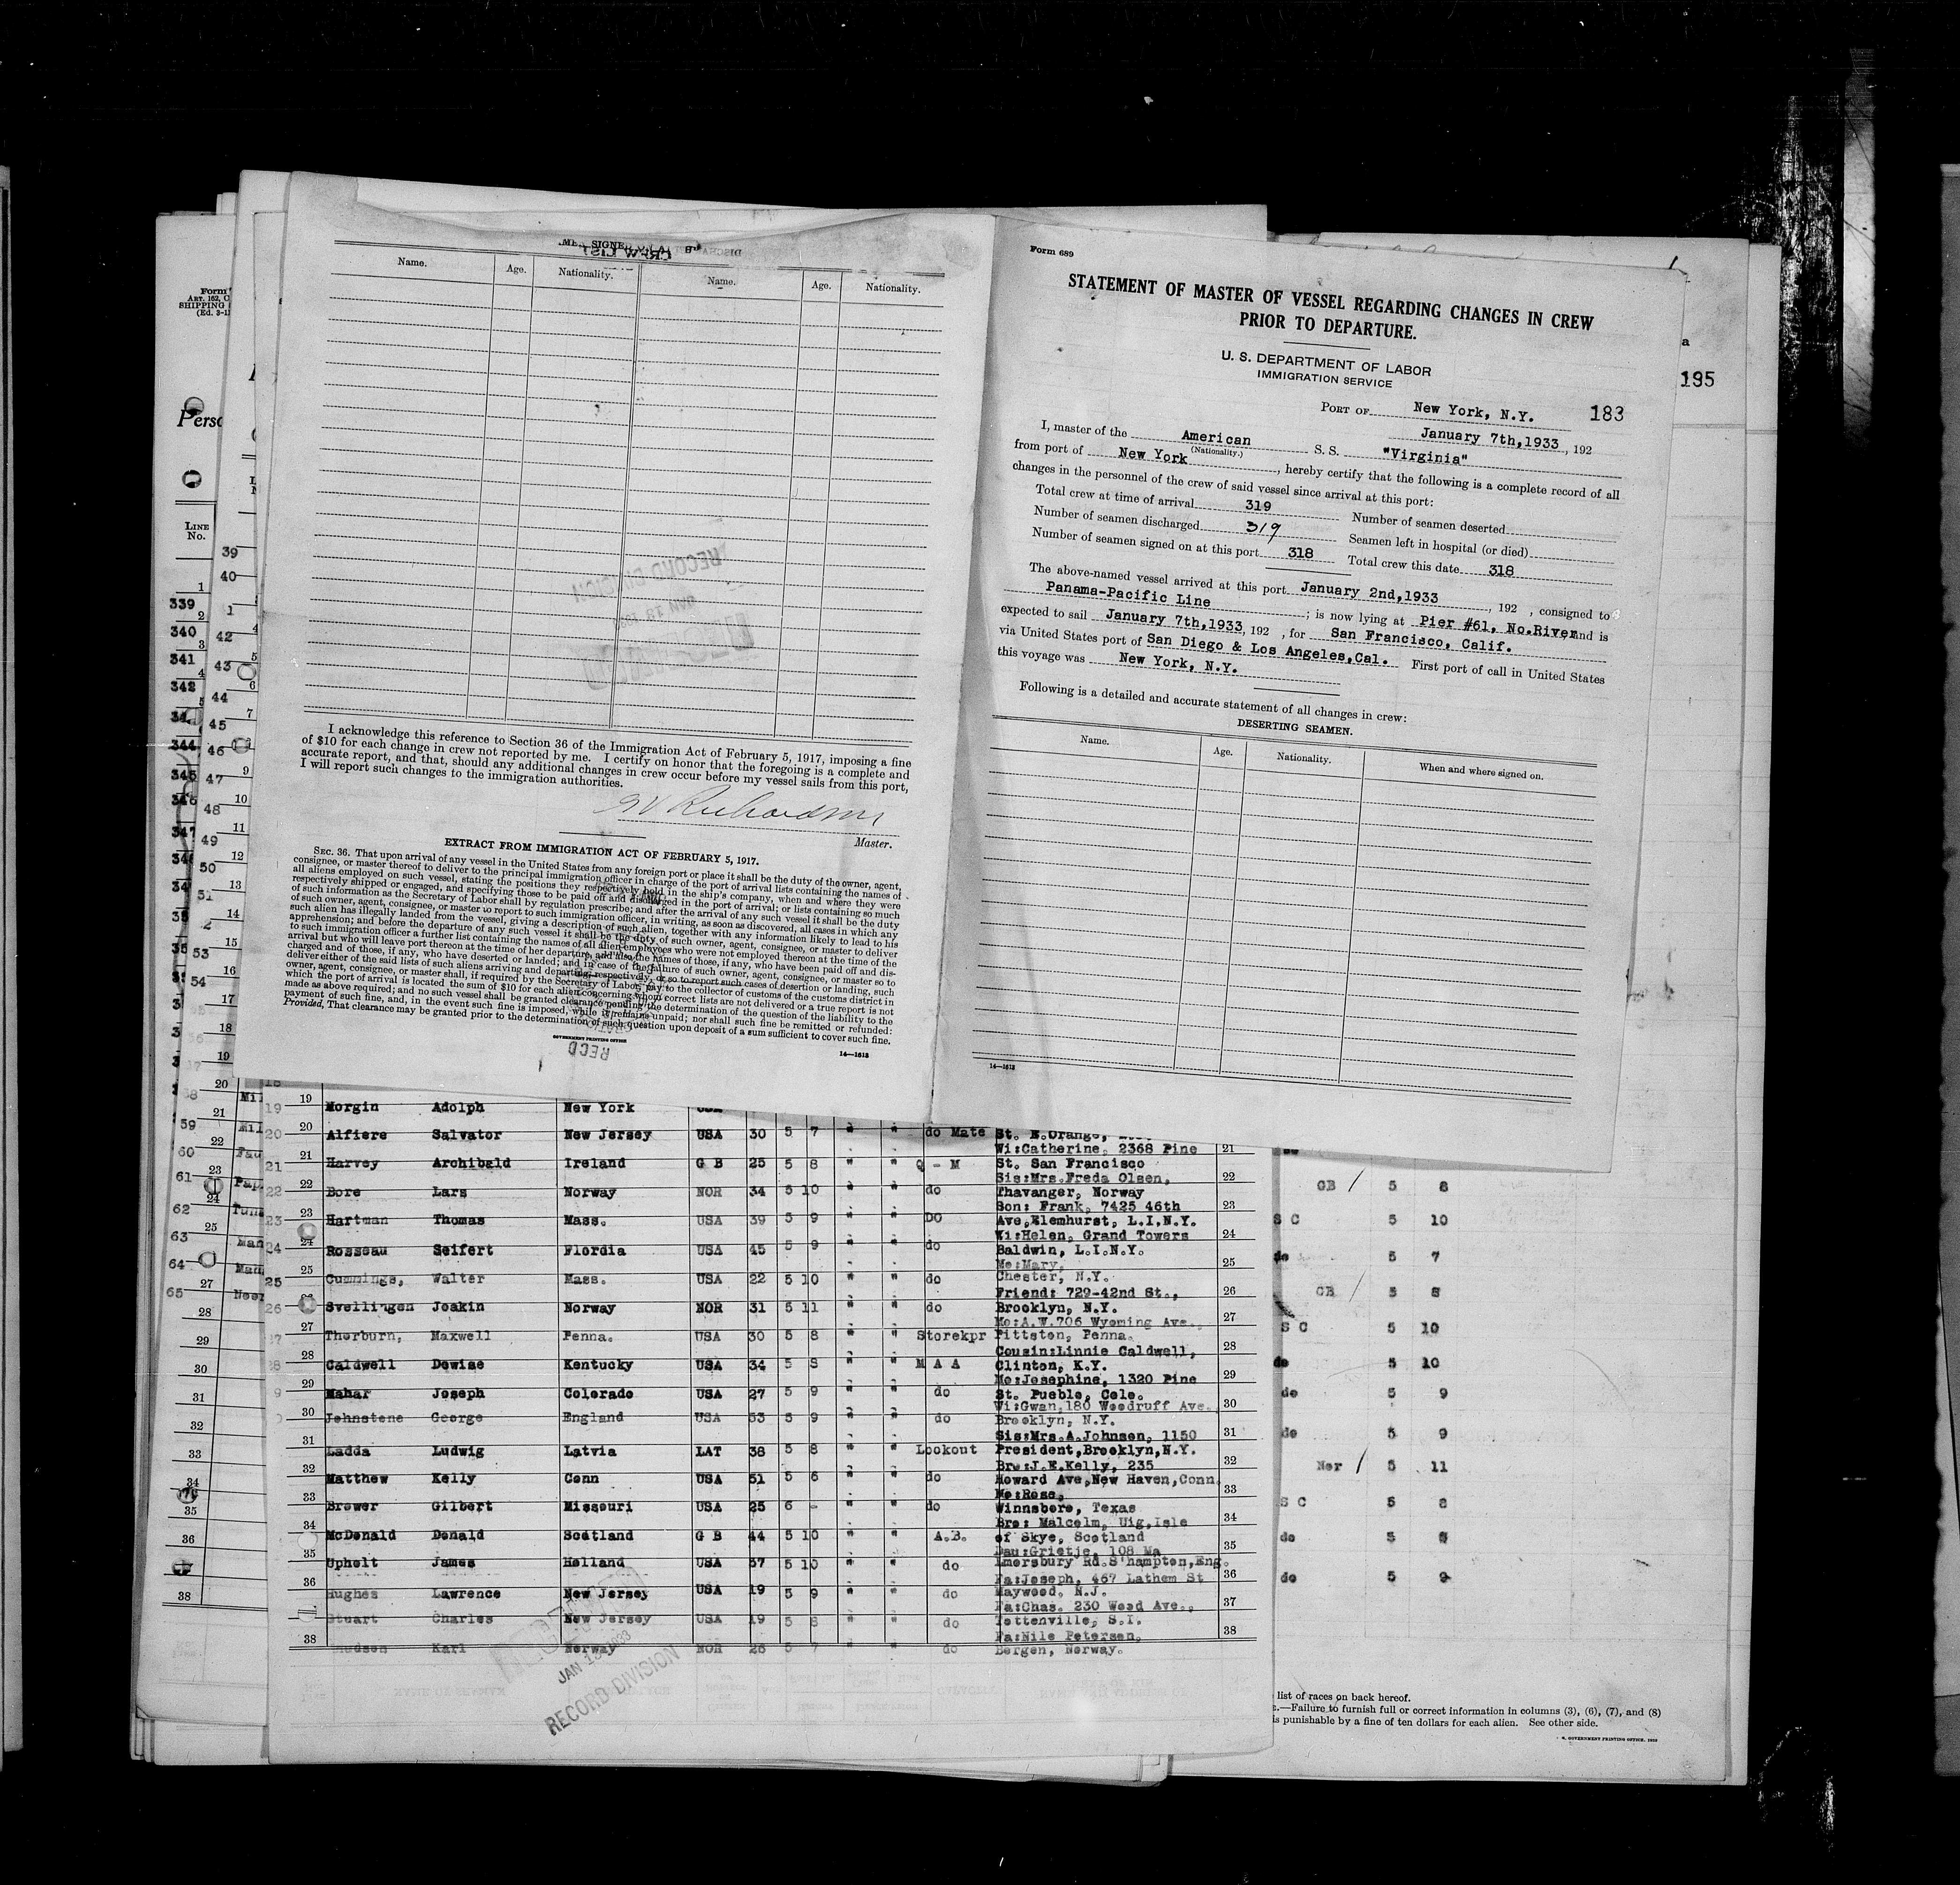 Form 689
STATEMENT OF MASTER OF VESSEL REGARDING CHANGES IN CREW
PRIOR TO DEPARTURE.
U. S. DEPARTMENT OF LABOR
IMMIGRATION SERVICE
PORT OF New York, N.Y. 183
January 7th,1933, 192
I, master of the American S. S. "Virginia"
(Nationality.)
from port of New York, hereby certify that the following is a complete record of all
changes in the personnel of the crew of said vessel since arrival at this port:
Total crew at time of arrival 319 Number of seamen deserted
Number of seamen discharged 319 Seamen left in hospital (or died)
Number of seamen signed on at this port 318 Total crew this date 318
The above-named vessel arrived at this port January 2nd,1933, 192 , consigned to
Panama-Pacific Line; is now lying at Pier #61, No.River and is
expected to sail January 7th,1933, 192 , for San Francisco, Calif.
via United States port of San Diego & Los Angeles,Cal. First port of call in United States
this voyage was New York, N.Y.
Following is a detailed and accurate statement of all changes in crew:
DESERTING SEAMEN.
Name. Age. Nationality. When and where signed on.
14—1613
Name. Age. Nationality. Name. Age. Nationality.
I acknowledge this reference to Section 36 of the Immigration Act of February 5, 1917, imposing a fine
of $10 for each change in crew not reported by me. I certify on honor that the foregoing is a complete and
accurate report, and that, should any additional changes in crew occur before my vessel sails from this port,
I will report such changes to the immigration authorities.
Richardson
Master.
EXTRACT FROM IMMIGRATION ACT OF FEBRUARY 5, 1917.
SEC. 36. That upon arrival of any vessel in the United States from any foreign port or place it shall be the duty of the owner, agent,
consignee, or master thereof to deliver to the principal immigration officer in charge of the port of arrival lists containing the names of
all aliens employed on such vessel, stating the positions they respectively held in the ship's company, when and where they were
respectively shipped or engaged, and specifying those to be paid off and discharged in the port of arrival; or lists containing so much
of such information as the Secretary of Labor shall by regulation prescribe; and after the arrival of any such vessel it shall be the duty
of such owner, agent, consignee, or master to report to such immigration officer, in writing, as soon as discovered, all cases in which any
such alien has illegally landed from the vessel, giving a description of such alien, together with any information likely to lead to his
apprehension; and before the departure of any such vessel it shall be the duty of such owner, agent, consignee, or master to deliver
to such immigration officer a further list containing the names of all alien employees who were not employed thereon at the time of the
arrival but who will leave port thereon at the time of her departure, and also the names of those, if any, who have been paid off and dis-
charged and of those, if any, who have deserted or landed; and in case of the failure of such owner, agent, consignee, or master so to
deliver either of the said lists of such aliens arriving and departing, respectively, or so to report such cases of desertion or landing, such
owner, agent, consignee, or master shall, if required by the Secretary of Labor, pay to the collector of customs of the customs district in
which the port of arrival is located the sum of $10 for each alien concerning whom correct lists are not delivered or a true report is not
made as above required; and no such vessel shall be granted clearance pending the determination of the question of the liability to the
payment of such fine, and, in the event such fine is imposed, while it remains unpaid; nor shall such fine be remitted or refunded:
Provided, That clearance may be granted prior to the determination of such question upon deposit of a sum sufficient to cover such fine.
GOVERNMENT PRINTING OFFICE
14—1613
RECD
195
19 Morgin Adolph New York USA
20 Alfiere Salvator New Jersey USA 30 5 7 " " do Mate St. E.Orange,
Wi:Catherine, 2368 Pine 21
21 Harvey Archibald Ireland G B 25 5 8 " " Q - M St. San Francisco
Sis:Mrs.Freda Olsen, 22
22 Bore Lars Norway NOR 34 5 10 " " do Thavanger, Norway
Son: Frank, 7425 46th 23
23 Hartman Thomas Mass. USA 39 5 9 " " DO Ave,Elemhurst, L.I.N.Y.
Wi:Helen, Grand Towers 24
24 Rosseau Seifert Flordia USA 45 5 9 " " do Baldwin, L.I.N.Y.
Mo:Mary, 25
25 Cummings, Walter Mass. USA 22 5 10 " " do Chester, N.Y.
Friend: 729-42nd St., 26
26 Svellingen Joakin Norway NOR 31 5 11 " " do Brooklyn, N.Y.
Mo:A.W.706 Wyoming Ave., 27
27 Thorburn, Maxwell Penna. USA 30 5 8 " " Storekpr Pittston, Penna.
Cousin:Linnie Caldwell, 28
28 Caldwell Dewise Kentucky USA 34 5 8 " " M A A Clinton, K.Y.
Mo:Josephine, 1320 Pine 29
Mahar Joseph Colorado USA 27 5 9 " " do St. Pueblo, Colo.
Wi:Gwan,180 Woodruff Ave. 30
Johnstone George England USA 53 5 9 " " do Brooklyn, N.Y.
Sis:Mrs.A.Johnsen, 1150 31
Ladda Ludwig Latvia LAT 38 5 8 " " Lookout President,Brooklyn,N.Y.
Bro:J.E.Kelly, 235 32
Matthew Kelly Conn USA 51 5 6 " " do Howard Ave,New Haven,Conn.
Mo:Rose, 33
Brewer Gilbert Missouri USA 25 6 - " " do Winnsboro, Texas
Bro: Malcolm, Uig,Isle 34
McDonald Donald Scotland G B 44 5 10 " " A.B. of Skye, Scotland
Dau:Grietje, 108 Ma 35
Upholt James Holland USA 37 5 10 " " do Emorsbury Rd.S'hampton,Eng.
Fa:Joseph, 467 Lathem St 36
Hughes Lawrence New Jersey USA 19 5 9 " " do Maywood. N.J.
Fa:Chas. 230 Wood Ave., 37
Stuart Charles New Jersey USA 19 5 8 " " do Tottenville, S.I.
Fa:Nils Petersen, 38
Karl Norway NOR 26 5 7 " " do Bergen, Norway.
JAN 18 1933
RECORD DIVISION
GB / 5 8
S C 5 10
do 5 7
GB / 5 8
S C 5 10
do 5 10
do 5 9
do 5 9
Nor / 5 11
S C 5 8
do 5
do 5 9
list of races on back hereof.
—Failure to furnish full or correct information in columns (3), (6), (7), and (8)
is punishable by a fine of ten dollars for each alien. See other side.